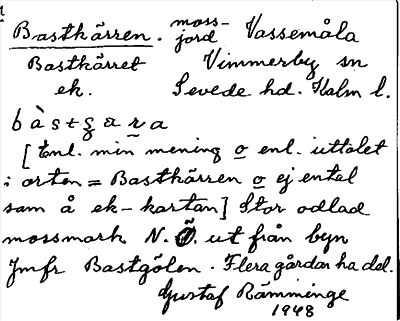 Bastkärren. moss-jord Vassemåla
Bastkärret Vimmerby sn
ek. Sevede hd. Kalm l.
bàstʂära
[Enl. min mening o enl. uttalet
i orten = Bastkärren o ej ental
som å ek-kartan] Stor odlad
mossmark N.Ö. ut från byn
Jmfr Bastgölen. Flera gårdar ha del.
Gustaf Rämminge
1948